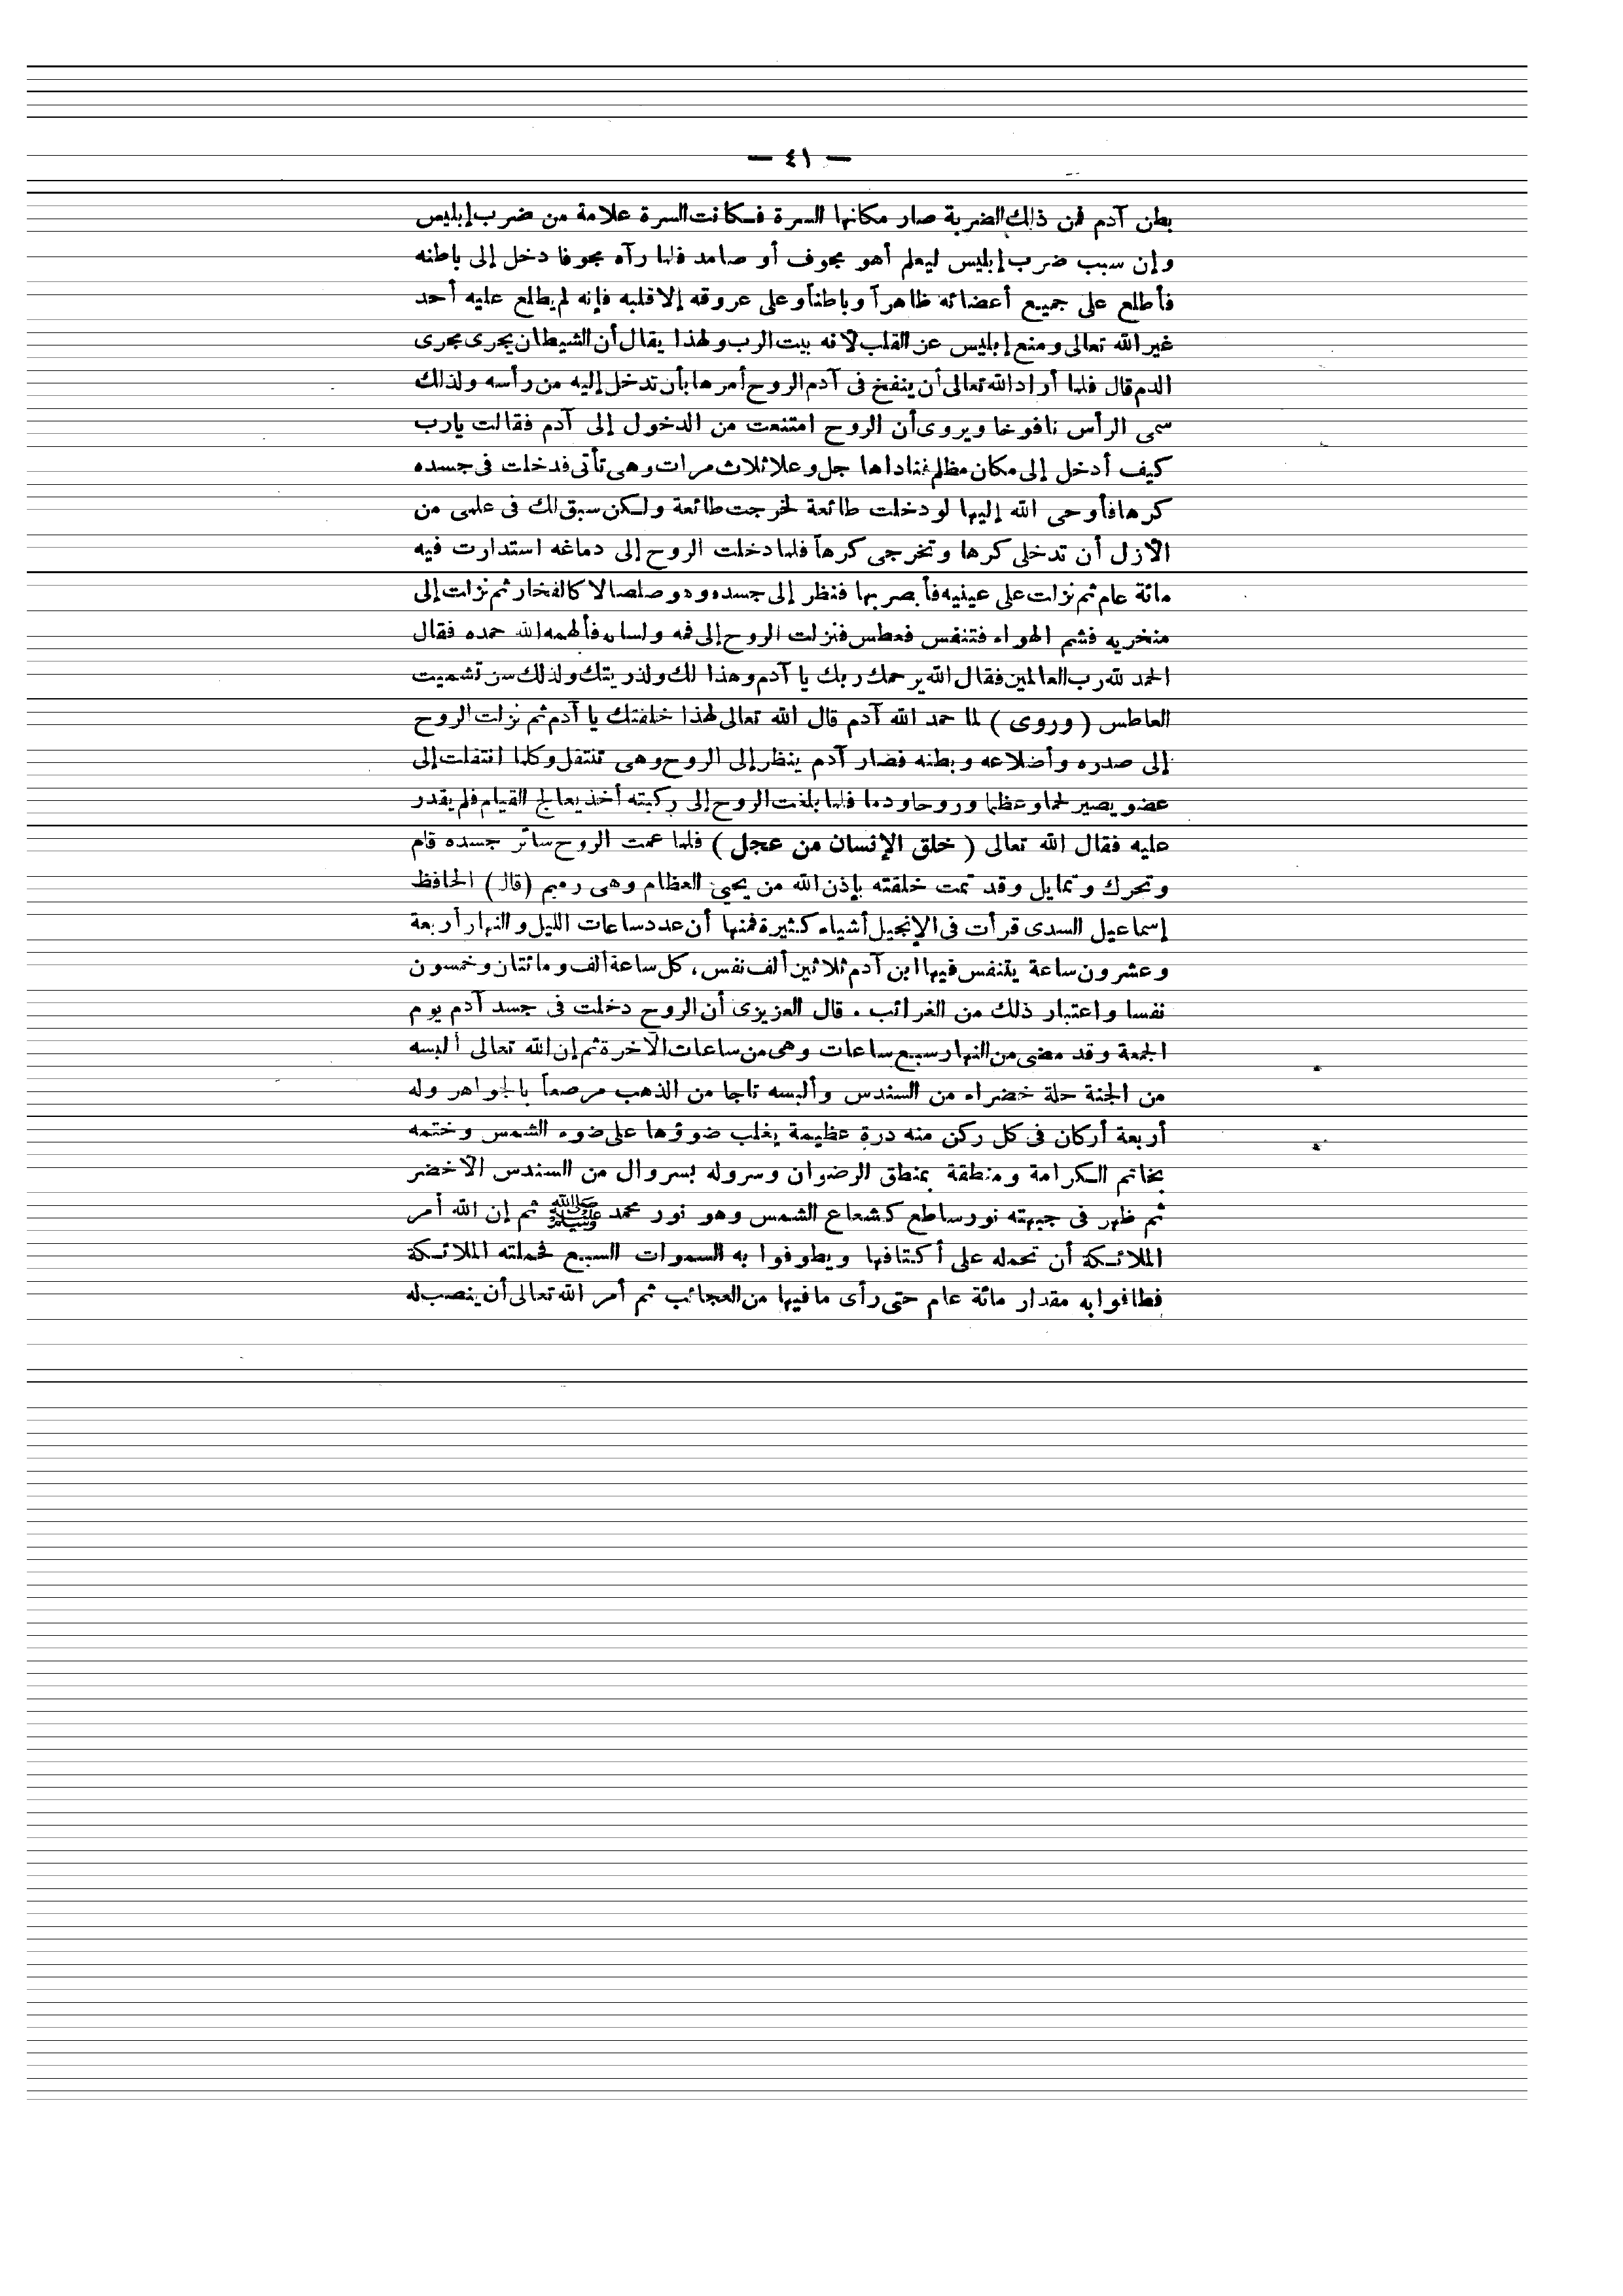 — ٤١ —
بطن آدم فمن ذلك الضربة صار مكانها السرة فكانت السرة علامة من ضرب إبليس
وإن سبب ضرب إبليس ليعلم أهو مجوف أو صامد فلما رآه مجوفا دخل إلى باطنه
فأطلع على جميع أعضائه ظاهراً وباطناً وعلى عروقه إلا قلبه فإنه لم يطلع عليه أحد
غير الله تعالى ومنع إبليس عن القلب لأنه بيت الرب ولهذا يقال أن الشيطان يجرى مجرى
الدم قال فلما أراد الله تعالى أن ينفخ فى آدم الروح أمرها بأن تدخل إليه من رأسه ولذلك
سمى الرأس نافوخا ويروى أن الروح امتنعت من الدخول إلى آدم فقالت يارب
كيف أدخل إلى مكان مظلم فناداها جل وعلا ثلاث مرات وهى تأتى فدخلت فى جسده
كرها فأوحى الله إليها لو دخلت طائعة لخرجت طائعة ولكن سبق لك فى علمى من
الأزل أن تدخلى كرها وتخرجى كرهاً فلما دخلت الروح إلى دماغه استدارت فيه
مائة عام ثم نزلت على عينيه فأبصر بها فنظر إلى جسده وهو صلصالا كالفخار ثم نزلت إلى
منخريه فشم الهواء فتنفس فعطس فنزلت الروح إلى فمه ولسانه فألهمه الله حمده فقال
الحمد لله رب العالمين فقال الله يرحمك ربك يا آدم وهذا لك ولذريتك ولذلك سن تشميت
العاطس ( وروى ) لما حمد الله آدم قال الله تعالى لهذا خلقتك يا آدم ثم نزلت الروح
إلى صدره وأضلاعه وبطنه فصار آدم ينظر إلى الروح وهى تنتقل وكلما انتقلت إلى
عضو يصير لحما وعظما وروحا ودما فلما بلغت الروح إلى ركبته أخذ يعالج القيام فلم يقدر
عليه فقال الله تعالى ( خلق الإنسان من عجل ) فلما عمت الروح سائر جسده قام
وتحرك وتمايل وقد تمت خلقته بإذن الله من يحيي العظام وهى رميم (قال) الحافظ
إسماعيل السدى قرأت فى الإنجيل أشياء كثيرة فمنها أن عدد ساعات الليل والنهار أربعة
وعشرون ساعة يتنفس فيها ابن آدم ثلاثين ألف نفس، كل ساعة ألف ومائتان وخمسون
نفسا واعتبار ذلك من الغرائب . قال العزيزى أن الروح دخلت فى جسد آدم يوم
الجمعة وقد مضى من النهار سبع ساعات وهى من ساعات الآخرة ثم إن الله تعالى ألبسه
من الجنة حلة خضراء من السندس وألبسه تاجا من الذهب مرصعاً بالجواهر وله
أربعة أركان فى كل ركن منه درة عظيمة يغلب ضوؤها على ضوء الشمس وختمه
بخاتم الكرامة ومنطقة بمنطق الرضوان وسروله بسروال من السندس الأخضر
ثم ظهر فى جبهته نور ساطع كشعاع الشمس وهو نور محمد ﷺ ثم إن الله أمر
الملائكة أن تحمله على أكتافها ويطوفوا به السموات السبع فحملته الملائكة
فطافوا به مقدار مائة عام حتى رأى ما فيها من العجائب ثم أمر الله تعالى أن ينصب له